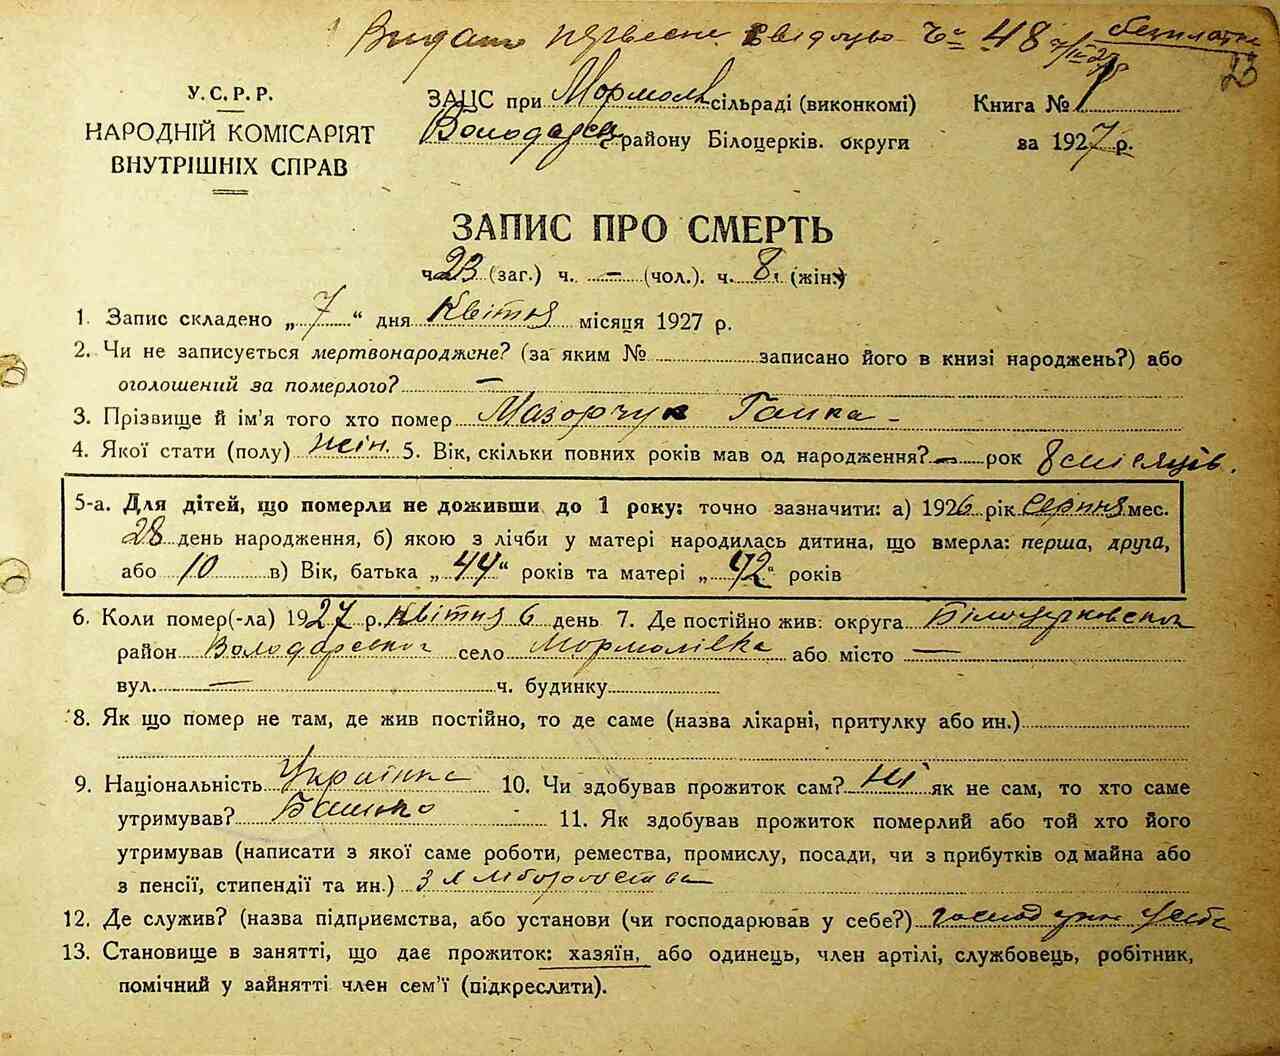 Видано первісне свідоцтво Ч° 48 7/IV 27 р безплатно
23
У.С.Р.Р.
НАРОДНІЙ КОМІСАРІЯТ
ВНУТРІШНІХ СПРАВ
ЗАЦС при Мормолів сільраді (виконкомі)
Володарськ району Білоцерків. округи
Книга № 1
за 1927 р.
ЗАПИС ПРО СМЕРТЬ
ч 23 (заг.) ч. – (чол.). ч. 8. (жін.)
1. Запис складено „ 7 “ дня Квітня місяця 1927 р.
2. Чи не записується мертвонароджене? (за яким № записано його в книзі народжень?) або
оголошений за померлого? –
3. Прізвище й ім'я того хто помер Мазорчук Ганка –
4. Якої стати (полу) жін. 5. Вік, скільки повних років мав од народження? – рок 8 місяців.
5-а. Для дітей, що померли не доживши до 1 року: точно зазначити: а) 1926 рік серпня мес.
28 день народження, б) якою з лічби у матері народилась дитина, що вмерла: перша, друга,
або 10 в) Вік, батька „ 44 “ років та матері „ 42 “ років
6. Коли помер(-ла) 1927 р. Квітня 6 день 7. Де постійно жив: округа Білоцерковської
район Володарської село Мормолівка або місто –
вул. – ч. будинку
8. Як що помер не там, де жив постійно, то де саме (назва лікарні, притулку або ин.)
9. Національність Українка 10. Чи здобував прожиток сам? Ні як не сам, то хто саме
утримував? Батько 11. Як здобував прожиток померлий або той хто його
утримував (написати з якої саме роботи, ремества, промислу, посади, чи з прибутків од майна або
з пенсії, стипендії та ин.) З хліборобства
12. Де служив? (назва підприємства, або установи (чи господарював у себе?) господ у себе
13. Становище в занятті, що дає прожиток: хазяїн, або одинець, член артілі, службовець, робітник,
помічний у зайнятті член сем'ї (підкреслити).